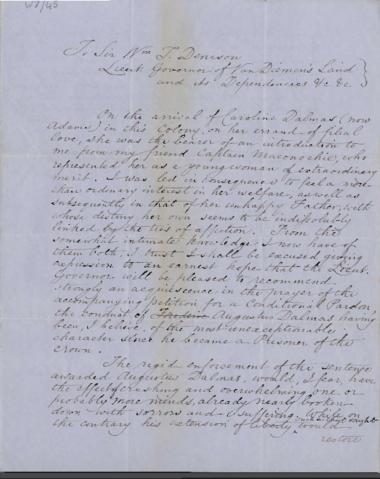 To Sir Wm T. Denison
Lieut Governor of Van Diemen's Land
and its Dependencies &c &c
On the arrival of Caroline Dalmas (now
Adams) in this Colony, on her errand of filial
love, she was the bearer of an introduction to
me from my friend Captain Maconochie, who
represented her as a young woman of extraordinary
merit. I was led in consequence to feel a more
than ordinary interest in her welfare, as well as
subsequently in that of her unhappy Father, with
whose destiny her own seems to be indissolubly
linked by the ties of affection. From the
somewhat intimate knowledge I now have of
them both, I trust I shall be excused giving
expression to an earnest hope that the Lieut.
Governor will be pleased to recommend
strongly an acquiescence in the prayer of the
accompanying petition for a Conditional Pardon,
the conduct of Augustus Dalmas having
been, I believe, of the most unexceptionable
character since he became a Prisoner of the
crown.
The rigid enforcement of the sentence
awarded Augustus Dalmas, would, I fear, have
the effect of crushing and overwhelming one, or
probably more minds, already nearly broken
down with sorrows and suffering. While on
the contrary his extension of liberty would
restore